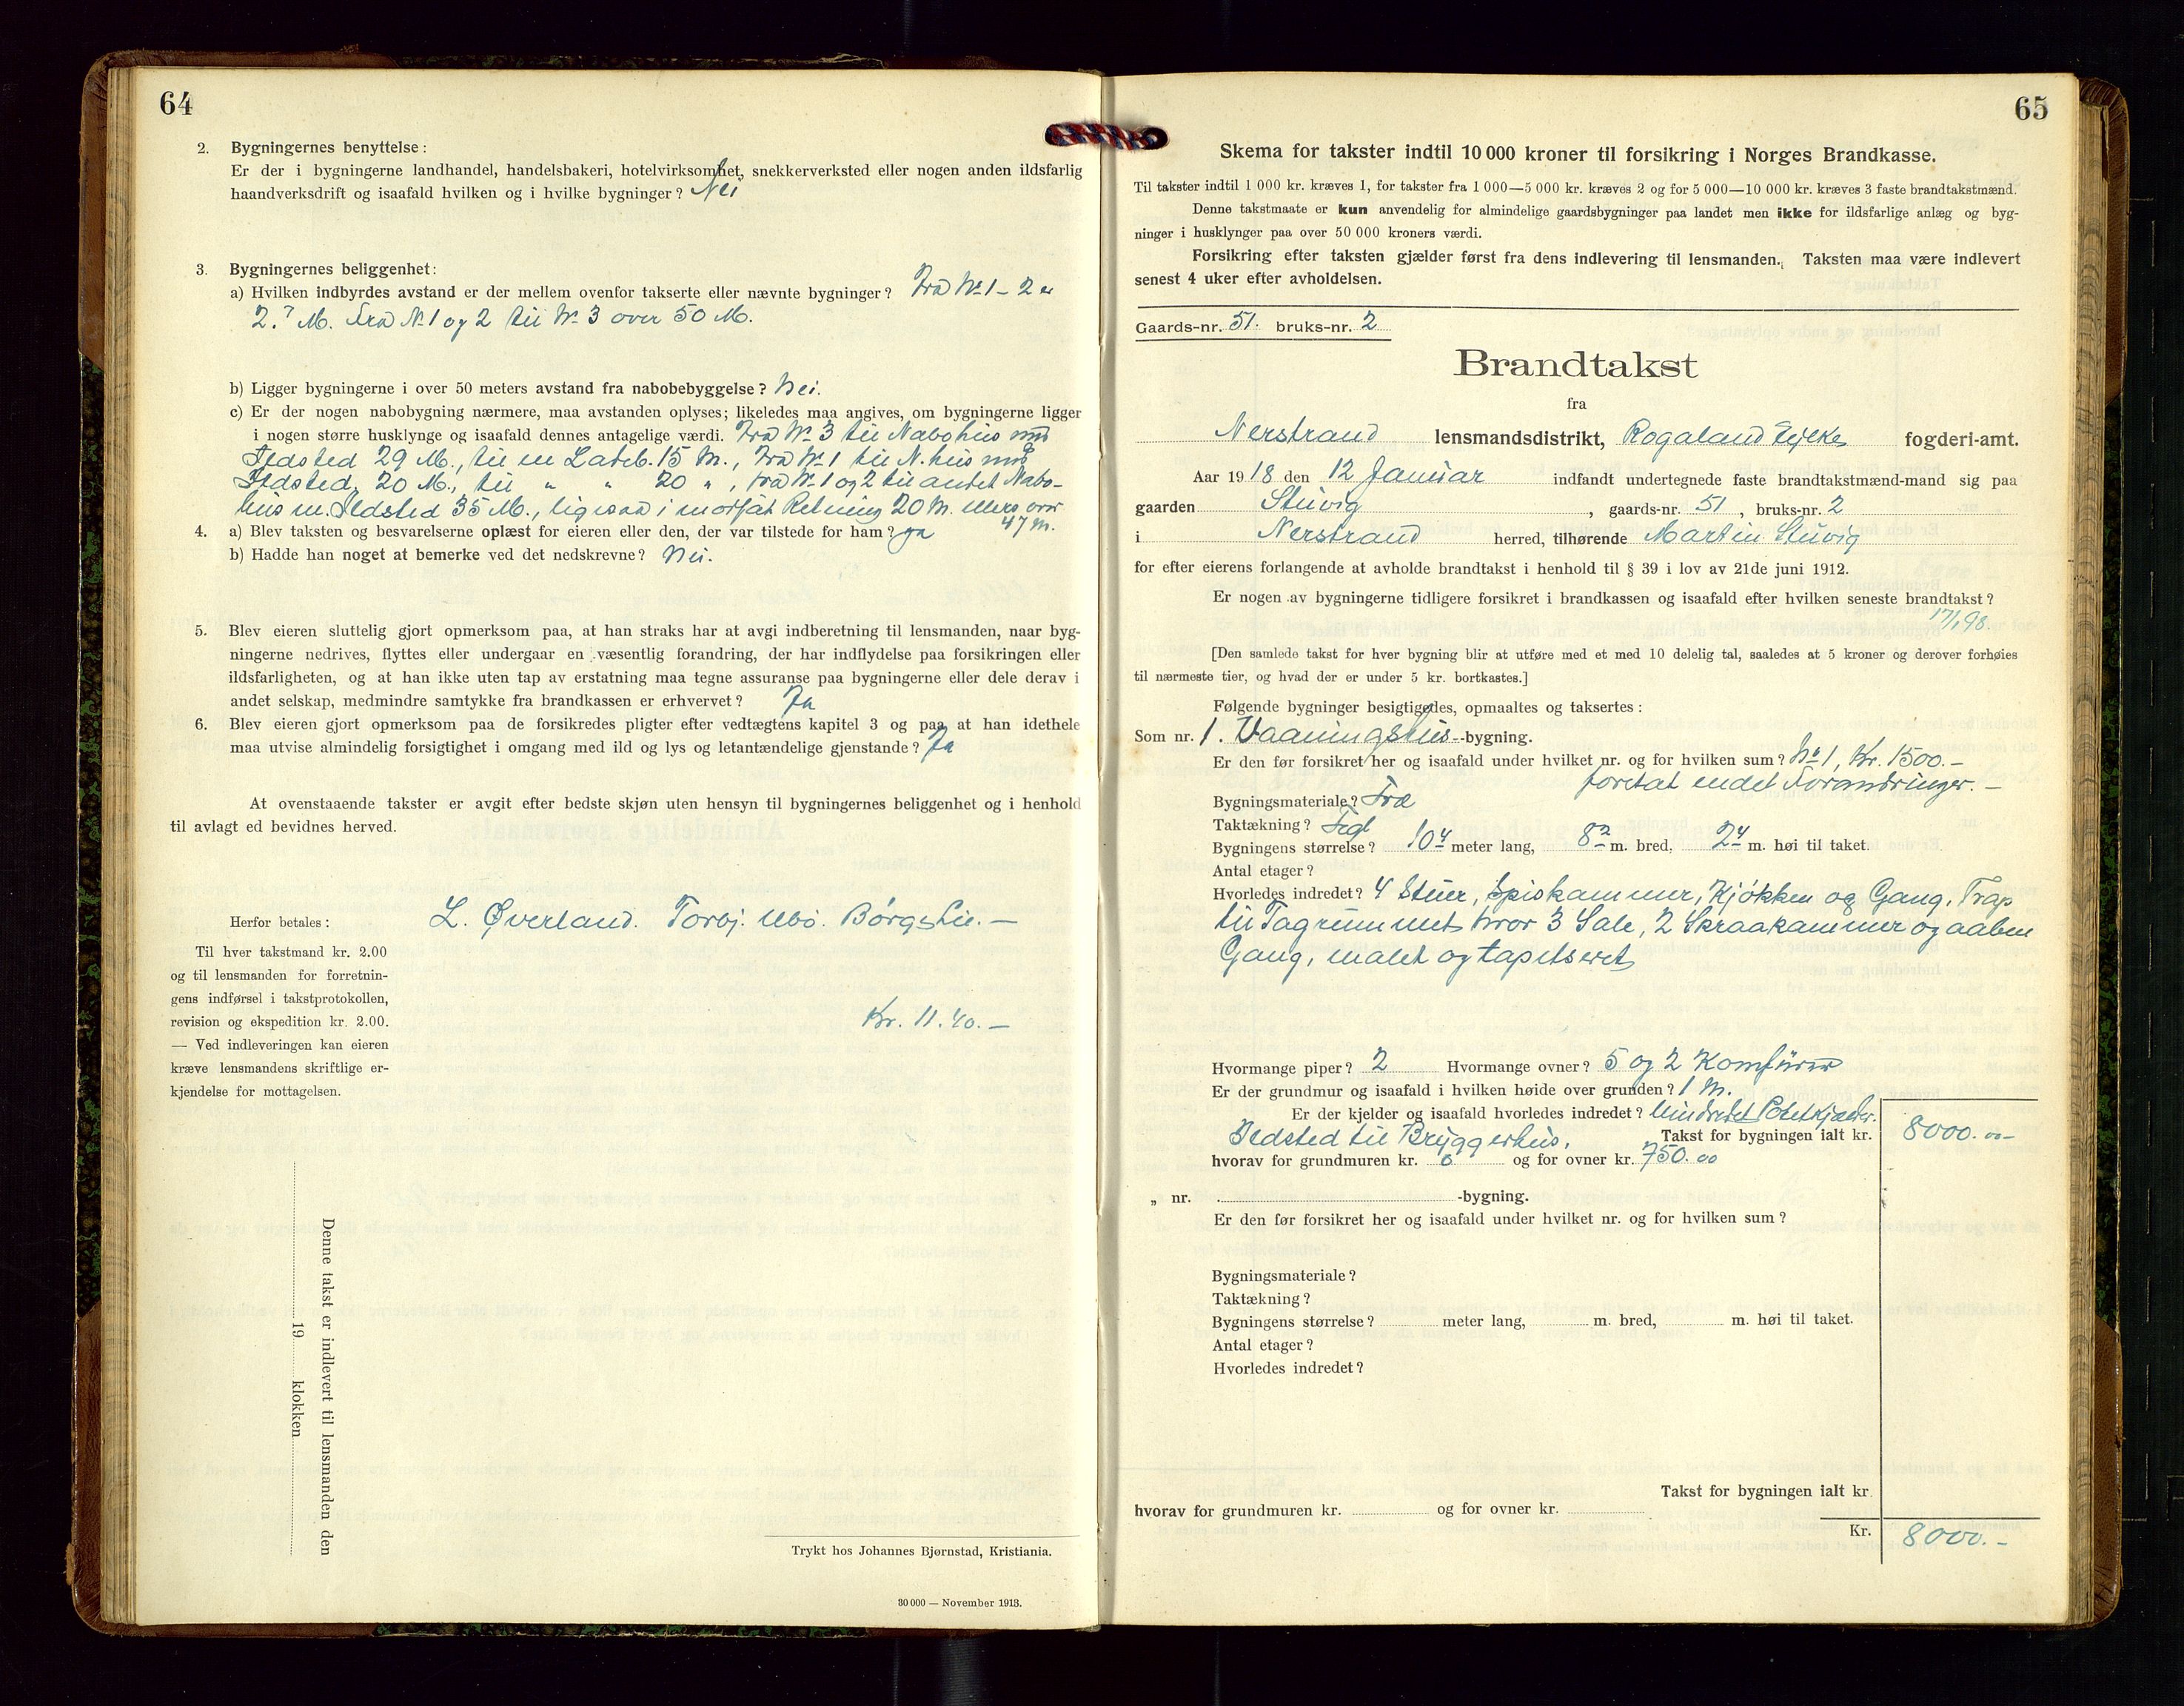 64
2. Bygningernes benyttelse:
Er der i bygningerne landhandel, handelsbakeri, hotelvirksomhet, snekkerverksted eller nogen anden ildsfarlig
haandverksdrift og isaafald hvilken og i hvilke bygninger? Nei
3. Bygningernes beliggenhet:
a) Hvilken indbyrdes avstand er der mellem ovenfor takserte eller nævnte bygninger? Fra No 1 - 2 er
2.7 M. Fra No 1 og 2 til No 3 over 50 M.
b) Ligger bygningerne i over 50 meters avstand fra nabobebyggelse? Nei.
c) Er der nogen nabobygning nærmere, maa avstanden oplyses; likeledes maa angives, om bygningerne ligger
i nogen større husklynge og isaafald dennes antagelige værdi. Fra No 3 til Nabohus med
Ildsted 29 M., til en Ladeb. 15 M., Fra No 1 til N. hus med
Ildsted 20 M., til " " 20 ", fra No 1 og 2 til andet Nabo-
hus m. Ildsted 35 M., ligesaa i motsat Retning 20 M. ellers over
47 M.
4. a) Blev taksten og besvarelserne oplæst for eieren eller den, der var tilstede for ham? ja
b) Hadde han noget at bemerke ved det nedskrevne? Nei.
5. Blev eieren sluttelig gjort opmerksom paa, at han straks har at avgi indberetning til lensmanden, naar byg-
ningerne nedrives, flyttes eller undergaar en væsentlig forandring, der har indflydelse paa forsikringen eller
ildsfarligheten, og at han ikke uten tap av erstatning maa tegne assuranse paa bygningerne eller dele derav i
andet selskap, medmindre samtykke fra brandkassen er erhvervet? Ja
6. Blev eieren gjort opmerksom paa de forsikredes pligter efter vedtægtens kapitel 3 og paa, at han idethele
maa utvise almindelig forsigtighet i omgang med ild og lys og letantændelige gjenstande? Ja
At ovenstaaende takster er avgit efter bedste skjøn uten hensyn til bygningernes beliggenhet og i henhold
til avlagt ed bevidnes herved.
L. Øverland. Torbj. Ubø. Børge Lie. —
Kr. 11.40. —
Herfor betales:
Til hver takstmand kr. 2.00
og til lensmanden for forretnin-
gens indførsel i takstprotokollen,
revision og ekspedition kr. 2.00.
— Ved indleveringen kan eieren
kræve lensmandens skriftlige er-
kjendelse for mottagelsen.
Denne takst er indlevert til lensmanden den
19 klokken
Trykt hos Johannes Bjørnstad, Kristiania.
30 000 — November 1913.
65
Skema for takster indtil 10 000 kroner til forsikring i Norges Brandkasse.
Til takster indtil 1 000 kr. kræves 1, for takster fra 1 000—5 000 kr. kræves 2 og for 5 000—10 000 kr. kræves 3 faste brandtakstmænd.
Denne takstmaate er kun anvendelig for almindelige gaardsbygninger paa landet men ikke for ildsfarlige anlæg og byg-
ninger i husklynger paa over 50 000 kroners værdi.
Forsikring efter taksten gjælder først fra dens indlevering til lensmanden. Taksten maa være indlevert
senest 4 uker efter avholdelsen.
Gaards-nr. 51. bruks-nr. 2
Brandtakst
fra
Nerstrand lensmandsdistrikt, Rogaland Fylkes fogderi-amt.
Aar 1918 den 12 Januar indfandt undertegnede faste brandtakstmænd-mand sig paa
gaarden Stuvig, gaards-nr. 51, bruks-nr. 2
i Nerstrand herred, tilhørende Martin Stuvig
for efter eierens forlangende at avholde brandtakst i henhold til § 39 i lov av 21de juni 1912.
Er nogen av bygningerne tidligere forsikret i brandkassen og isaafald efter hvilken seneste brandtakst?
17/1 98.
[Den samlede takst for hver bygning blir at utføre med et med 10 delelig tal, saaledes at 5 kroner og derover forhøies
til nærmeste tier, og hvad der er under 5 kr. bortkastes.]
Følgende bygninger besigtigedes, opmaaltes og taksertes:
Som nr. 1. Vaaningshus-bygning.
Er den før forsikret her og isaafald under hvilket nr. og for hvilken sum? No 1, Kr. 1500.—
foretat endel Forandringer. —
Bygningsmateriale? Træ
Taktækning? Tegl
Bygningens størrelse? 10 4 meter lang, 8 2 m. bred, 2 4 m. høi til taket.
Antal etager?
Hvorledes indredet? 4 Stuer, Spiskammer, Kjøkken og Gang. Trap
til Tagrummet hvor 3 Sale, 2 Skraakammer og aaben
Gang, malet og tapetseret
Hvormange piper? 2 Hvormange ovner? 5 og 2 Komfurer
Er der grundmur og isaafald i hvilken høide over grunden? 1 M.
Er der kjelder og isaafald hvorledes indredet? Uindredet Potetkjælder.
Ildsted til Bryggerhus. Takst for bygningen ialt kr. 8000.00—
hvorav for grundmuren kr. 0 og for ovner kr. 750.00
„ nr. -bygning.
Er den før forsikret her og isaafald under hvilket nr. og for hvilken sum?
Bygningsmateriale?
Taktækning?
Bygningens størrelse? meter lang, m. bred, m. høi til taket.
Antal etager?
Hvorledes indredet?
Takst for bygningen ialt kr.
hvorav for grundmuren kr. og for ovner kr.
Kr. 8000.—